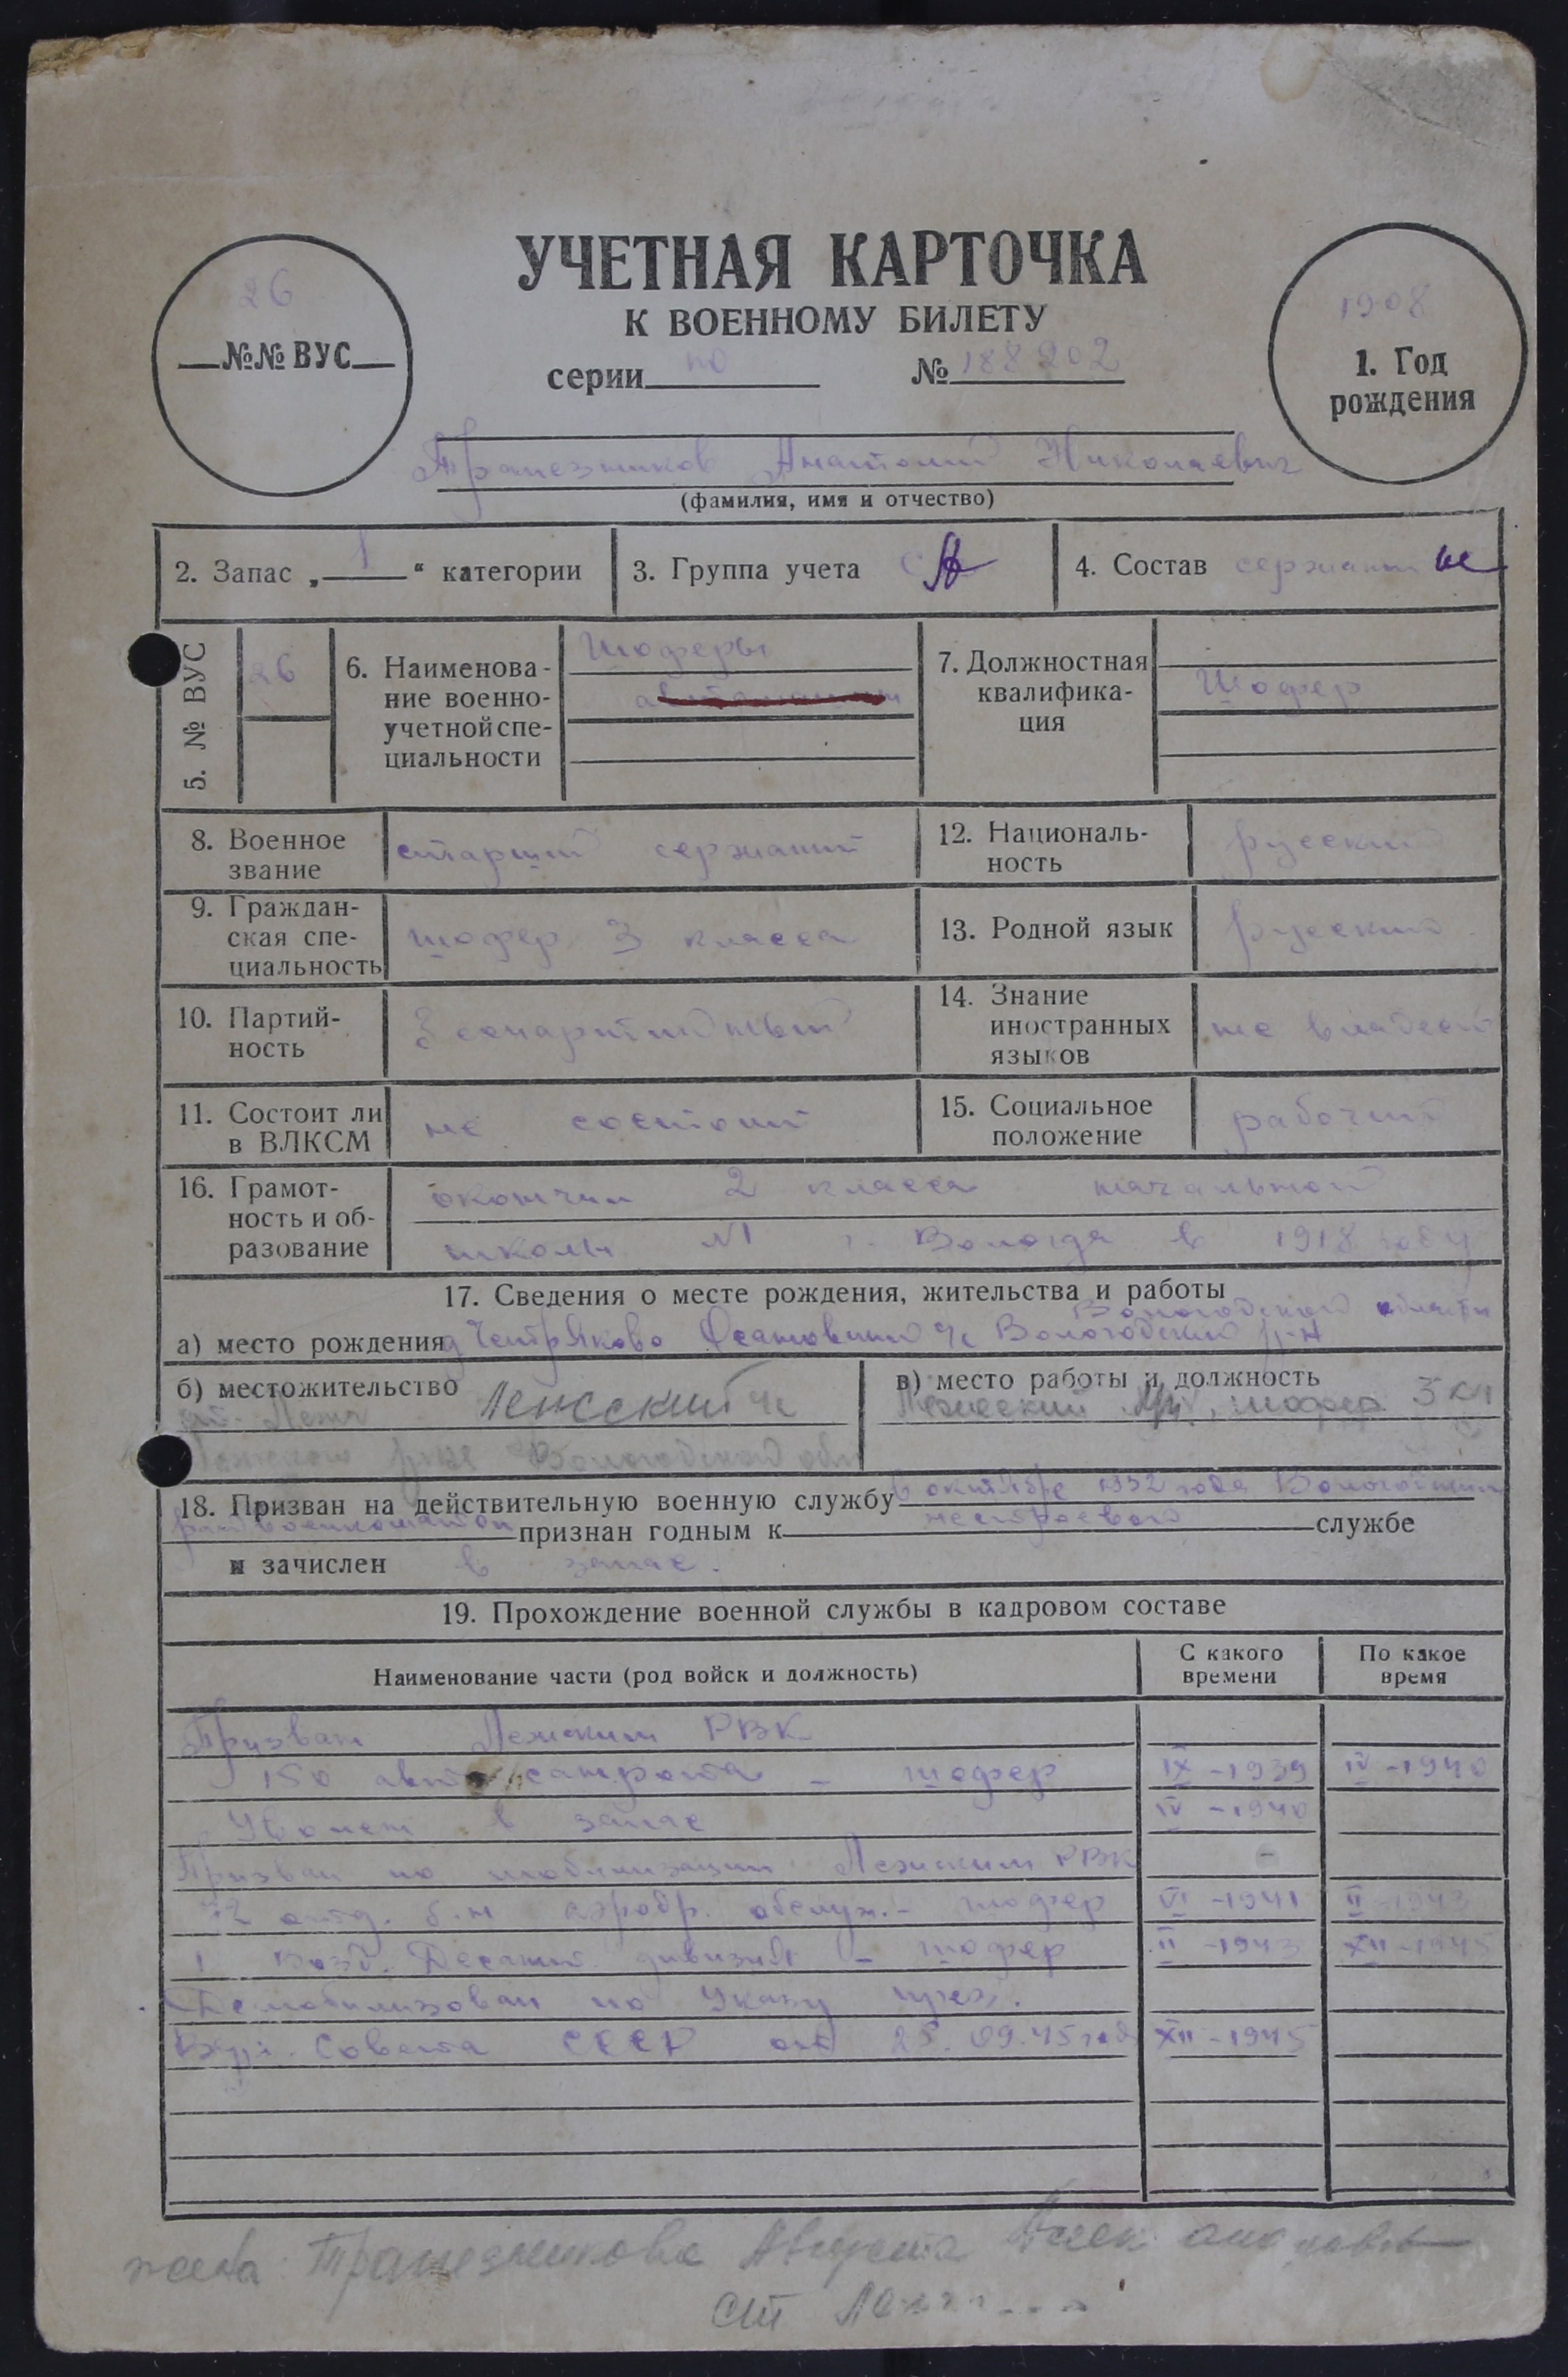 УЧЕТНАЯ КАРТОЧКА
К ВОЕННОМУ БИЛЕТУ
серии по № 188202
26
№№ ВУС
1908
1. Год
рождения
Трапезников Анатолий Николаевич
(фамилия, имя и отчество)
2. Запас „ 1 “ категории
3. Группа учета СА
4. Состав сержант
5. № ВУС 26
6. Наименова-
ние военно-
учетной спе-
циальности
Шоферы
7. Должностная
квалифика-
ция
Шофер
8. Военное
звание
старший сержант
12. Националь-
ность
русский
9. Граждан-
ская спе-
циальность
шофер 3 класса
13. Родной язык русский
10. Партий-
ность
беспартийный
14. Знание
иностранных
языков
не владеет
11. Состоит ли
в ВЛКСМ
не состоит
15. Социальное
положение
рабочий
16. Грамот-
ность и об-
разование
окончил 2 класса начальной
школы №1 г. Вологда в 1918 году
17. Сведения о месте рождения, жительства и работы
Вологодской области
а) место рождения д Вологодский р-н
б) местожительство
Лежский с/с
ст. Лежа
Лежского р-на Вологодской обл
в) место работы и должность
Лежский шофер 3 кл
18. Призван на действительную военную службу в октябре 1932 года Вологодским
райвоенкоматом признан годным к нестроевой службе
и зачислен в запас.
19. Прохождение военной службы в кадровом составе
Наименование части (род войск и должность)
С какого
времени
По какое
время
Призван Лежским РВК
150 авто санрота – шофер IX -1939 IV -1940
Уволен в запас IV -1940
Призван по мобилизации Лежским РВК -
отд. б-н аэродр. обслуж. – шофер VI -1941 II -1943
1 Возд. Десант дивизия – шофер II -1943 XII -1945
Демобилизован по Указу през.
Верх. Совета СССР от 25.09.45 года XII -1945
жена: Трапезникова Августа Александровна
ст